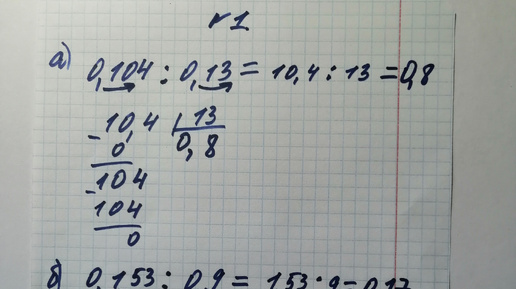 №1
а) 0,104 : 0,13 = 10,4 : 13 = 0,8
- 10,4 | 13
0 0,8
- 104
104
0
б) 0,153 : 0,9 = 153 : 9 = 0,17